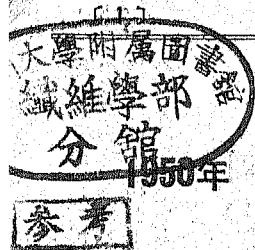 [ 1 ]
大學附属圖書館
纖維學部
分館
1950年
参考